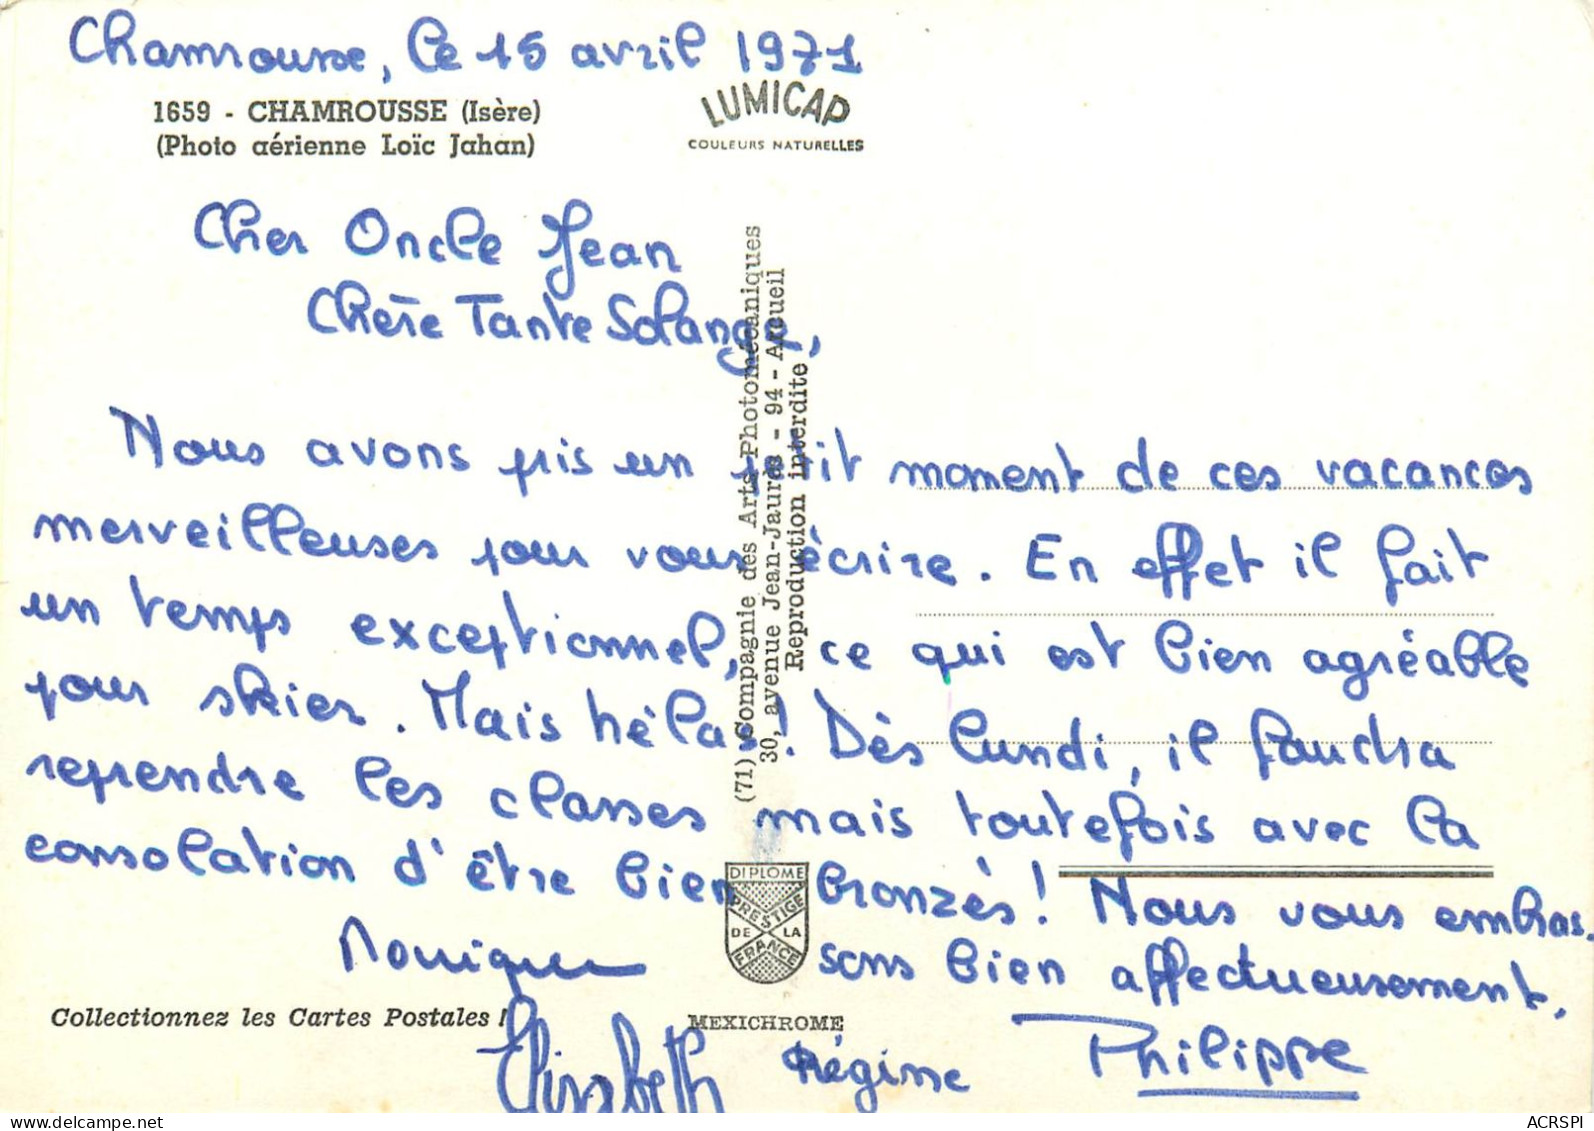 Chamrousse, le 15 avril 1971
1659 - CHAMROUSSE (Isère)
(Photo aérienne Loïc Jahan)
LUMICAP
COULEURS NATURELLES
Cher Oncle Jean
Chère Tante Solange,
Nous avons pris un petit moment de ces vacances
merveilleuses pour vous écrire. En effet il fait
un temps exceptionnel, ce qui est bien agréable
pour skier. Mais hélas! Dès lundi, il faudra
reprendre les classes mais toutefois avec la
consolation d'être bien bronzés! Nous vous embras-
sons bien affectueusement.
Monique
Elisabeth
Régine
Philippe
(71) Compagnie des Arts Photomécaniques
30, avenue Jean-Jaurès - 94 - Arcueil
Reproduction interdite
DIPLOME
PRESTIGE
DE LA
FRANCE
Collectionnez les Cartes Postales !
MEXICHROME
www.delcampe.net
ACRSPI